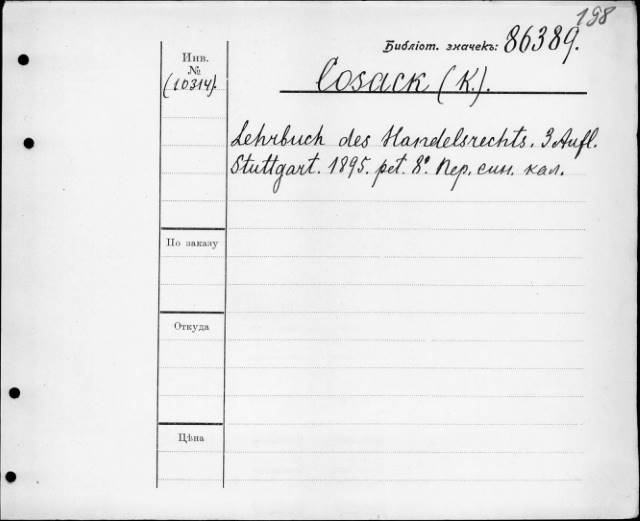 198
Библіот. значекъ: 86389.
Инв.
№
(10314).
Cosack (K.).
Lehrbuch des Handelsrechts. 3 Aufl.
Stuttgart. 1895. pet. 8°. Пер. син. кал.
По заказу
Откуда
Цѣна